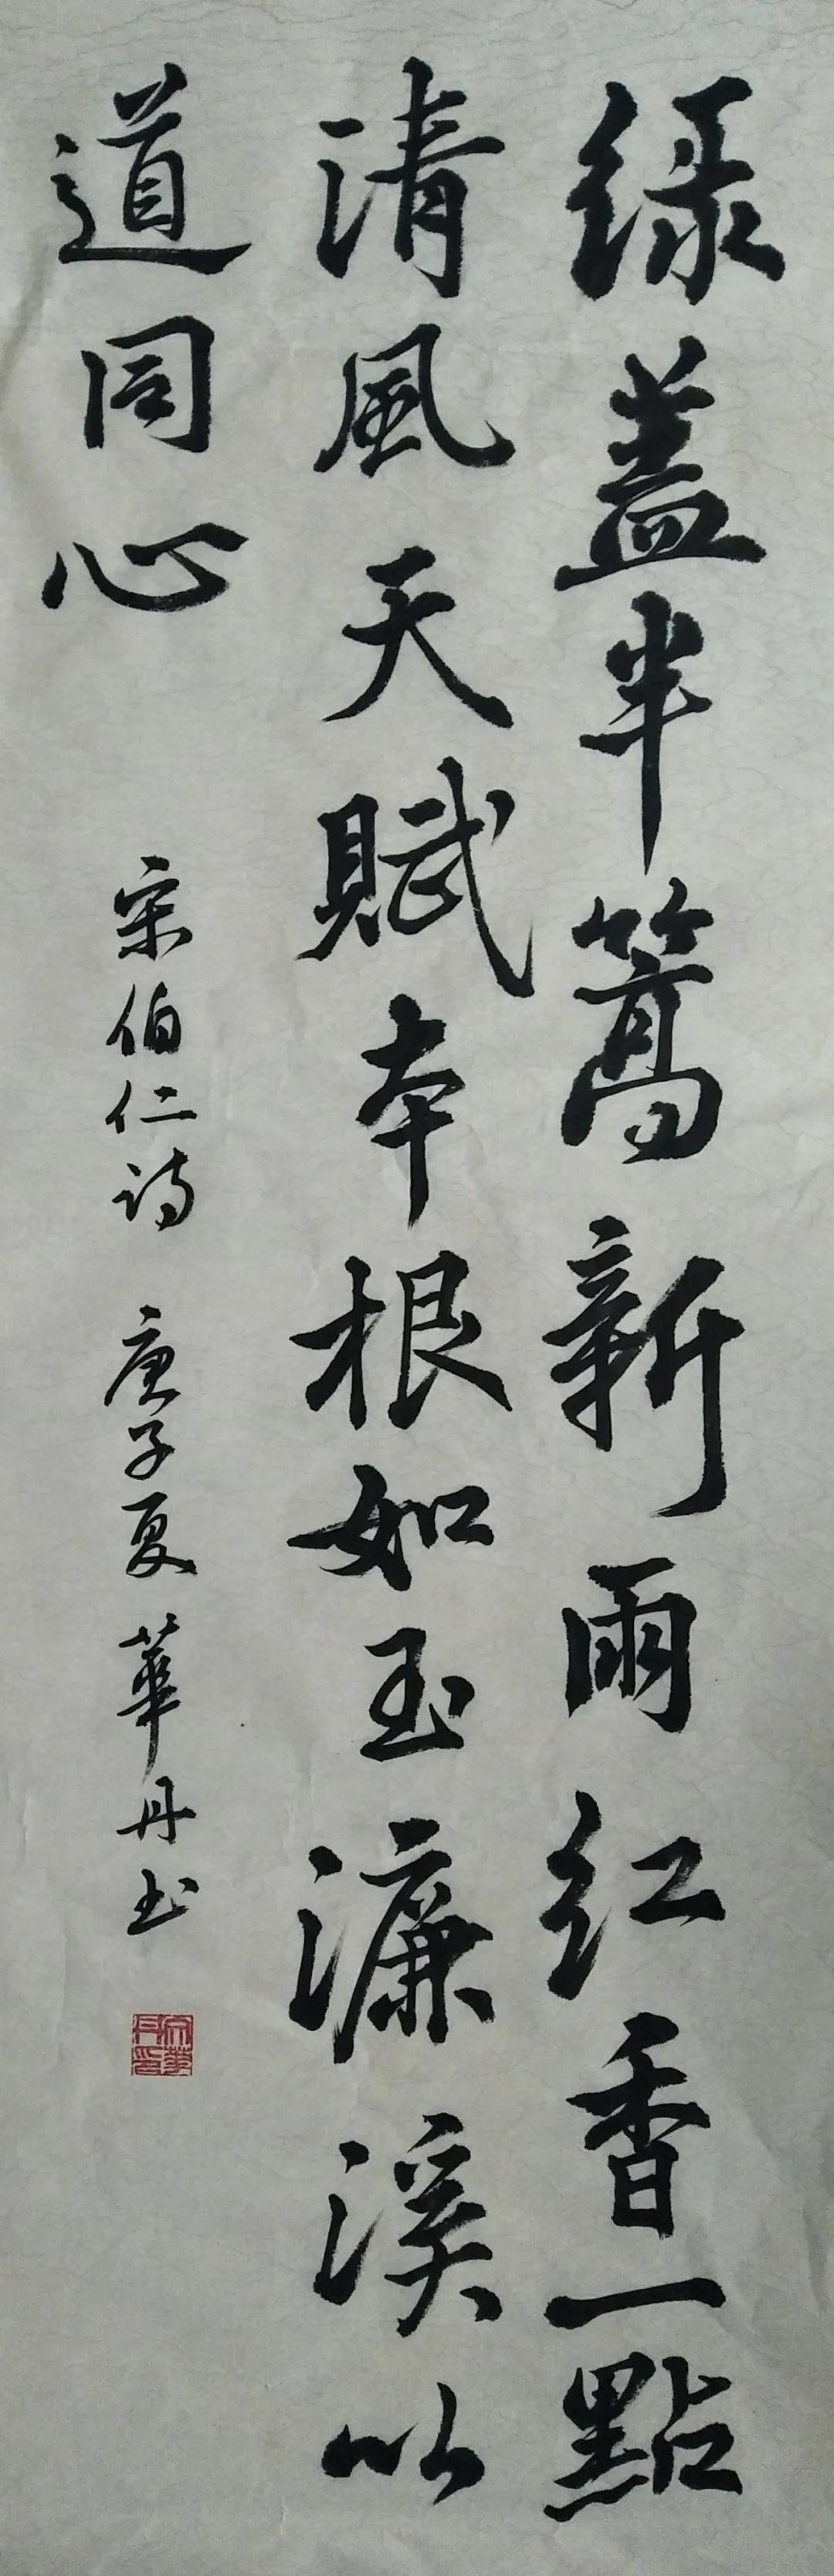 绿蓋半篙新雨红香一點
清風天賦本根如玉濂溪以
道同心
宋伯仁诗 庚子夏 華丹书